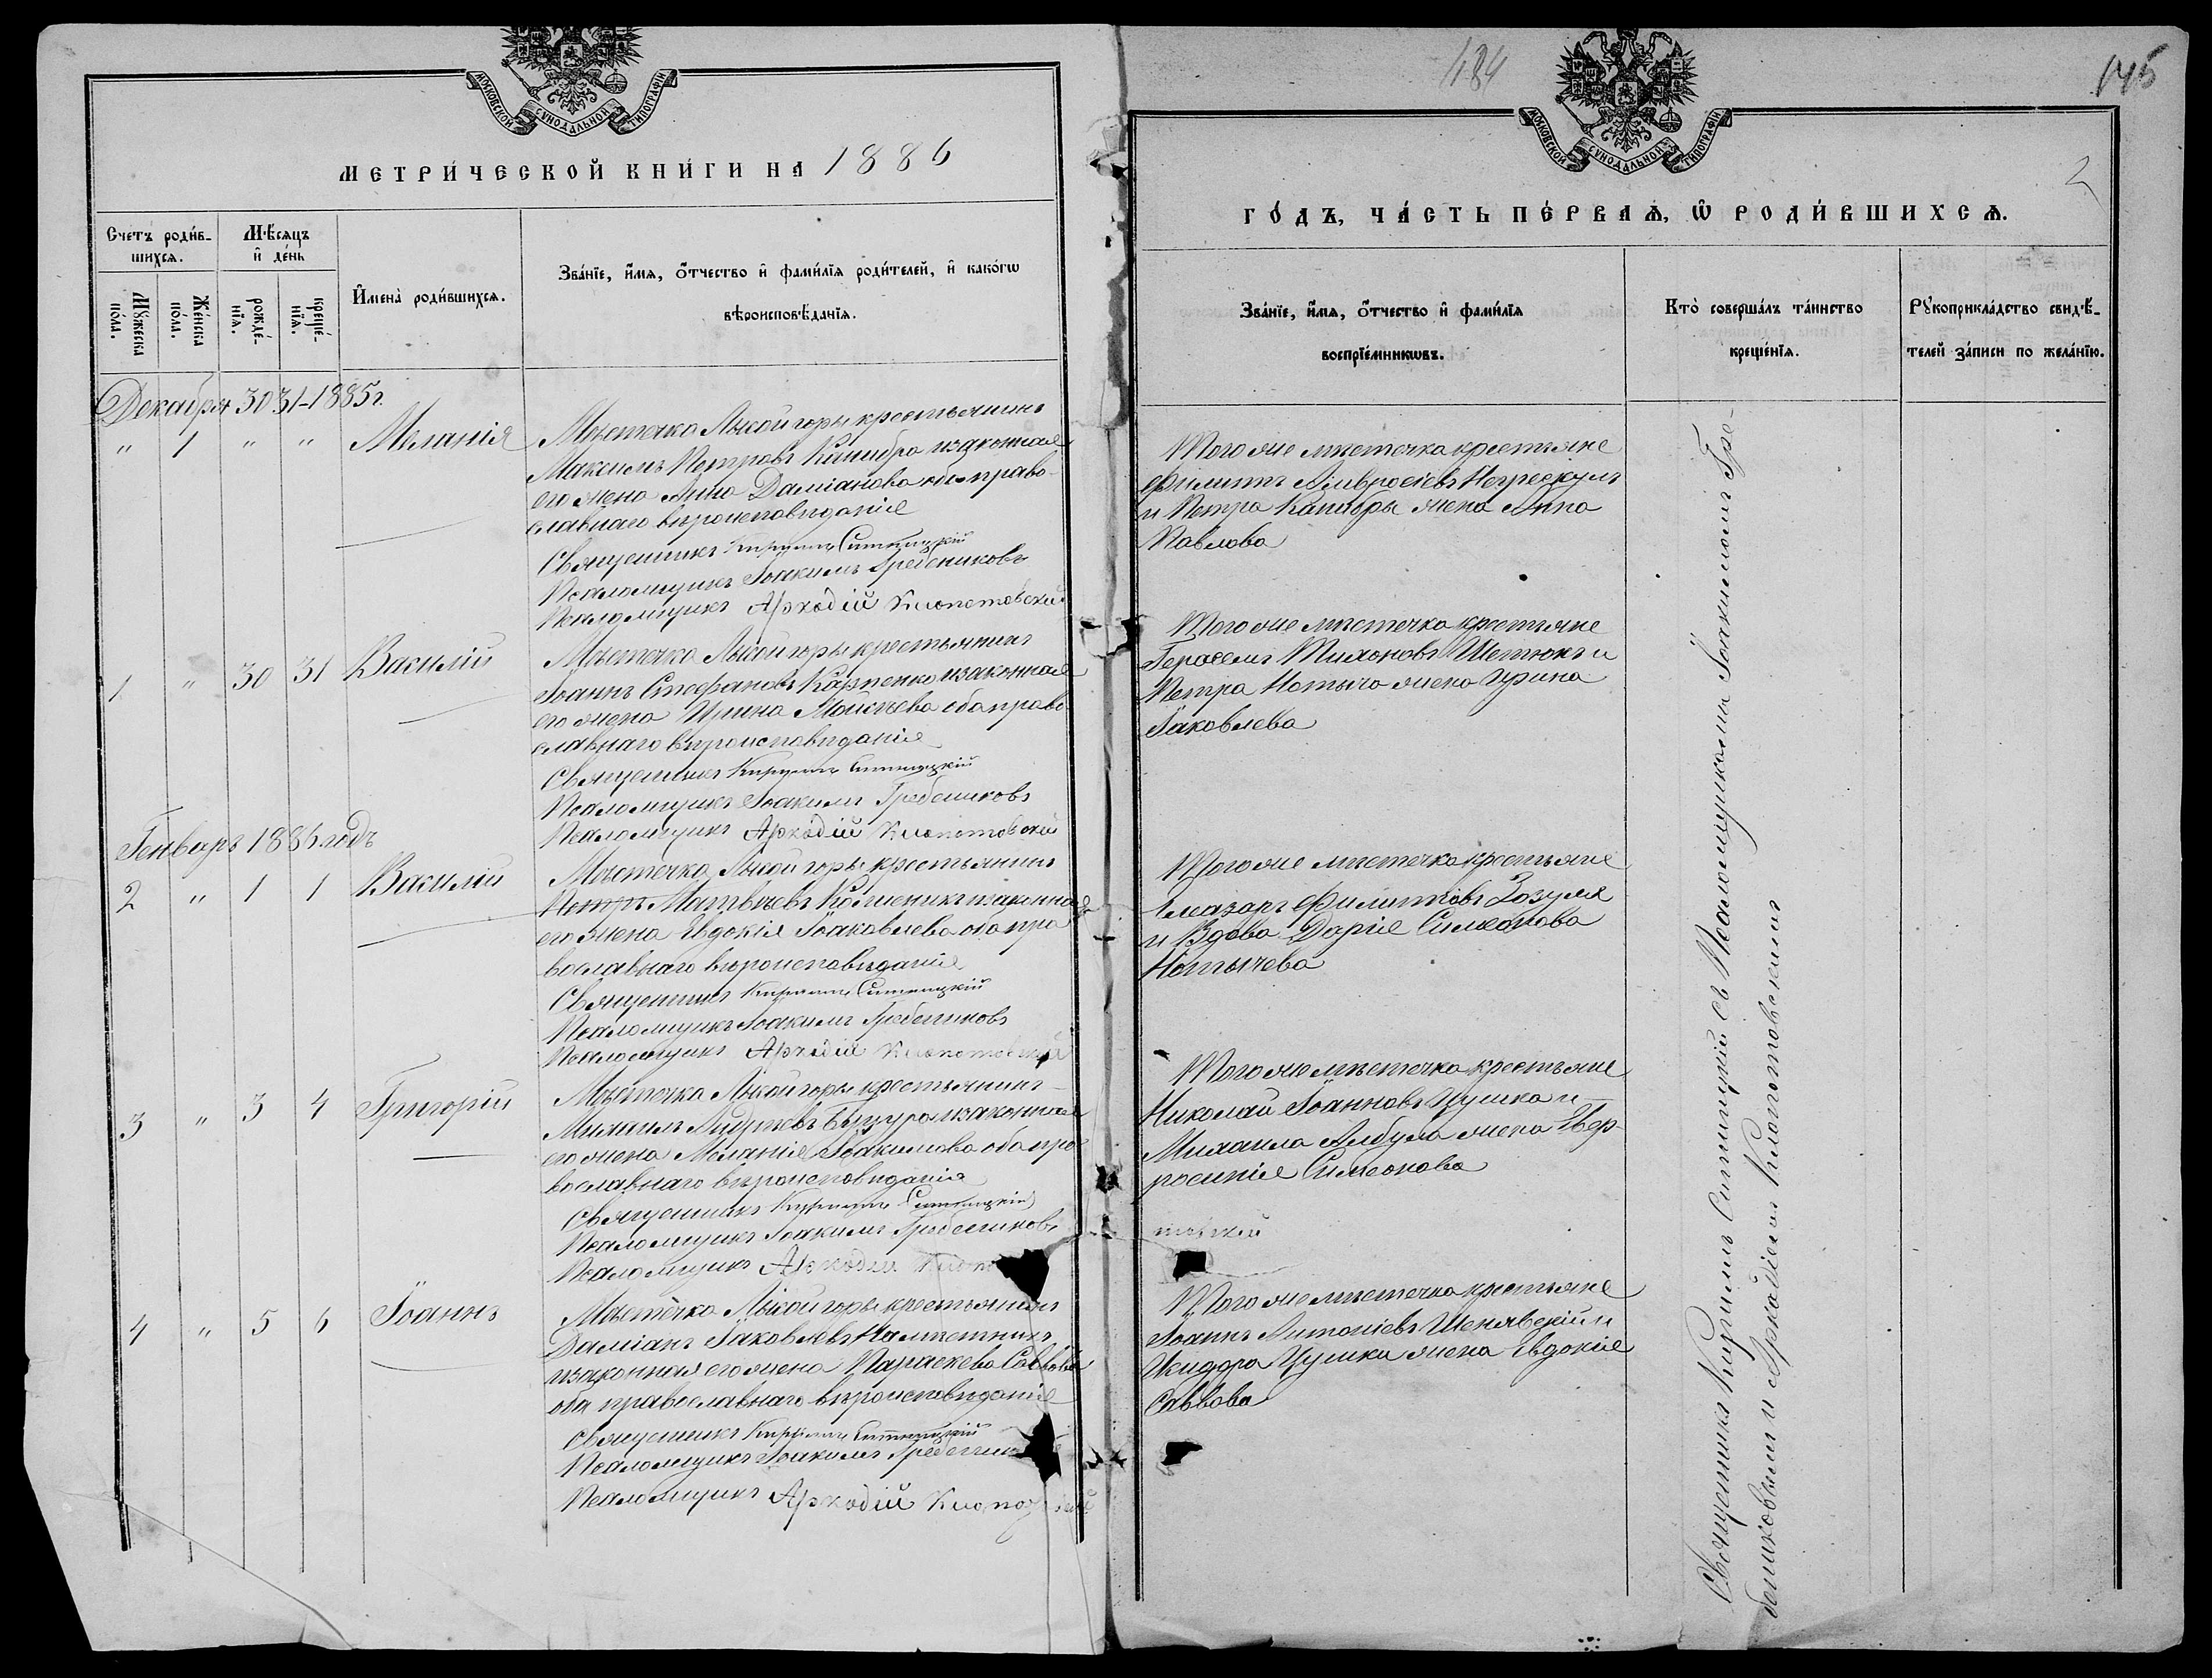 МОСКОВСКОЙ СѴНОДАЛЬНОЙ ТИПОГРАФІИ
МЕТРИ́ЧЕСКОЙ КНИ́ГИ НА 1886
Счетъ роди́в-
шихсѧ.
Мѣ́сѧцъ
и҆ де́нь
Мꙋжеска
по́ла.
Же́нска
по́ла.
рожде́-
нїѧ.
креще́-
нїѧ.
И҆мена̀ роди́вшихсѧ.
Зва́нїе, и҆́мѧ, ѻ҆́тчество и҆ фами́лїѧ роди́телей, и҆ како́гѡ
вѣроисповѣ́данїѧ.
Декабря 30 31-1885г.
" 1 " " Меланія
Мѣстечка Лысой горы крестьянинъ
Максимъ Петровъ изаконная
его жена Анна Даміанова оба право-
славнаго вѣроисповѣданія
Священникъ Кириллъ Ситницкій
Псаломщикъ Іоакимъ Гребениковъ
Псаломщикъ Аркадій Клопотовскій
1 " 30 31 Василій
Мѣстечка Лысой горы крестьянинъ
Іоаннъ Стефановъ Карпенко изаконная
его жена Ирина Моисеева оба право
славнаго вѣроисповѣданія
Священникъ Кириллъ Ситницкій
Псаломщикъ Іоакимъ Гребениковъ
Псаломщикъ Аркадій Клопотовскій
Генварь 1886 годъ
2 " 1 1 Василій
Мѣстечка Лысой горы крестьянинъ
Петръ Матвѣевъ изаконная
его жена Евдокія Іаковлева оба пра
вославнаго вѣроисповѣданія
Священникъ Кириллъ Ситницкій
Псаломщикъ Іоакимъ Гребениковъ
Псаломщикъ Аркадій Клопотовскій
3 " 3 4 Григорій
Мѣстечка Лысой горы крестьянинъ
Михаилъ Андреевъ изаконная
его жена Меланія Іоакимова оба пра
вославнаго вѣроисповѣданія
Священникъ Кириллъ Ситницкій
Псаломщикъ Іоакимъ Гребениковъ
Псаломщикъ Аркадій Клопо
4 " 5 6 Іоаннъ
Мѣстечка Лысой горы крестьянинъ
Даміанъ Іаковлевъ Намѣстникъ
изаконная его жена Параскева Саввова
оба православнаго вѣроисповѣданія
Священникъ Кириллъ Ситницкій
Псаломщикъ Іоакимъ Гребеник
Псаломщикъ Аркадій
484
145
2
МОСКОВСКОЙ СѴНОДАЛЬНОЙ ТИПОГРАФІИ
ГО́ДЪ, ЧА́СТЬ ПЕ́РВАѦ, Ѡ҆ РОДИ́ВШИХСѦ.
Зва́нїе, и҆́мѧ, ѻ҆́тчество и҆ фами́лїѧ
воспрїе́мникѡвъ.
Кто̀ соверша́лъ та́инство
креще́нїѧ.
Рꙋкоприкла́дство свидѣ́-
телей за́писи по жела́нїю.
Того же мѣстечка крестьяне
Филиппъ Амвросіевъ Негрескулъ
и Петра жена Анна
Павлова
Того же мѣстечка крестьяне
Герасимъ Тихоновъ и
Петра жена Ирина
Іаковлева
Того же мѣстечка крестьяне
Елеазаръ Филипповъ Зозуля
и Вдова Дарія Симеонова
Того же мѣстечка крестьяне
Николай Іоанновъ Цушка и
Михаила жена Евф-
росинія Симеонова
товскій
Того же мѣстечка крестьяне
Іоаннъ Антоніевъ и
Исидора Цушки жена Евдокія
Саввова
Священникъ Кириллъ Ситницкій съ Псаломщиками Іоакимомъ Гре-
бениковымъ и Аркадіемъ Клопотовскимъ